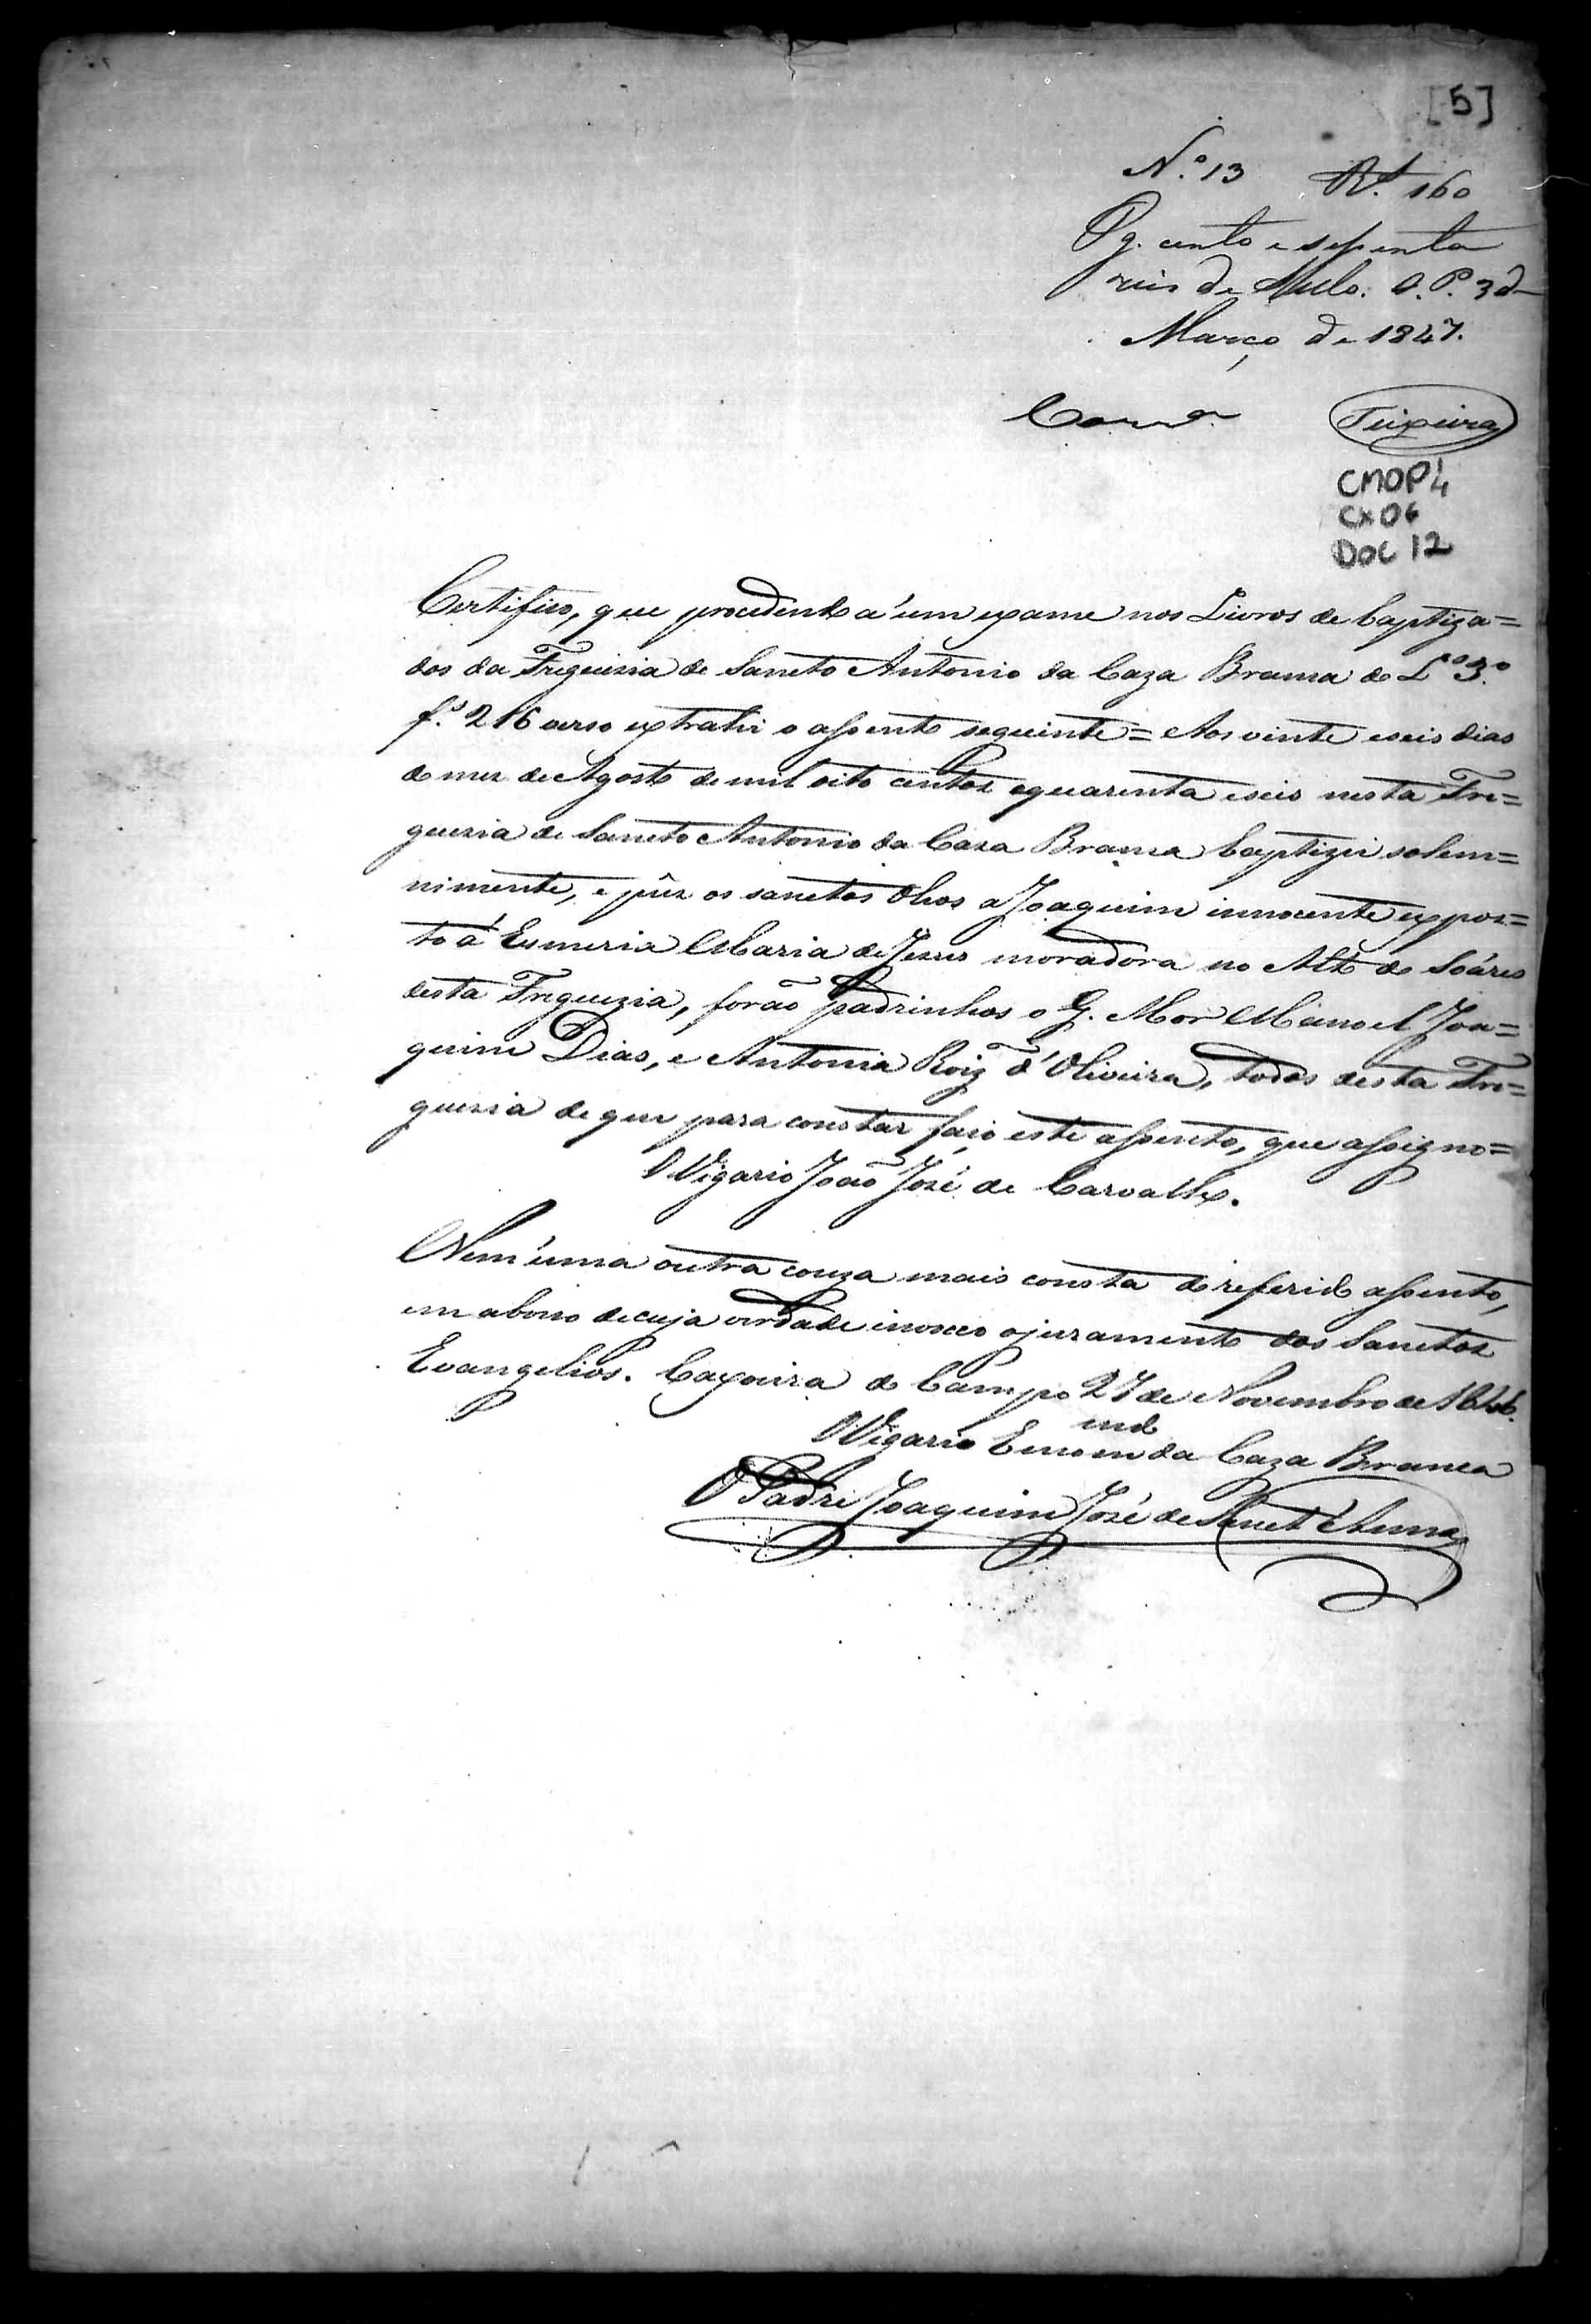 [5]
N.º 13 Rs. 160
Pg. cento e sessenta
reis de Sello. O. P. 3 de
Março de 1847.
Teixeira
CMOP 4
CX 06
DOC 12
Certifico, que procedendo á um exame nos Livros de baptiza=
dos da Freguezia de Sancto Antonio da Caza Branca do Lº 3º
fs. 216 verso extrahi o assento seguinte = Aos vinte e seis dias
do mez de Agosto de mil oito centos e quarenta e seis nesta Fre=
guezia de Sancto Antonio da Casa Branca baptizei solem=
nimente, e pûz os sanctos Oleos a Joaquim innocente expos=
to á Esmeria Maria de Jesus moradôra no Alto do Soáres
desta Freguezia, forão padrinhos o G. Mor Manoel Joa=
quim Dias, e Antonia Roiz d'Oliveira, todos desta Fre=
guezia de que para constar faço este assento, que assigno=
O Vigario João José de Carvalho.
Nem úma outra couza mais consta do referido assento,
em abono de cuja verdade invoco o juramento dos Sanctos
Evangelios. Caxoeira do Campo 27 de Novembro de 1846.
O Vigario Encomendo da Caza Branca
O Padre Joaquim José de Sanct'Anna